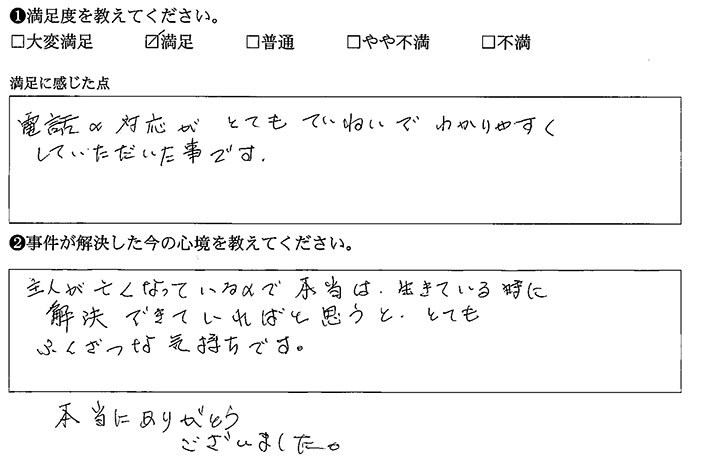 ❶満足度を教えてください。
□大変満足 ☑満足 □普通 □やや不満 □不満
満足に感じた点
電話の対応が とても ていねいで わかりやすく
していただいた事です.
❷事件が解決した今の心境を教えてください。
主人が亡くなっているので 本当は.生きている時に
解決 できていればと思うと.とても
ふくざつな気持ちです。
本当にありがとう
ございました。